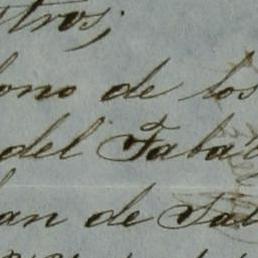 stros;
ono de los
del Taba
an de Tab